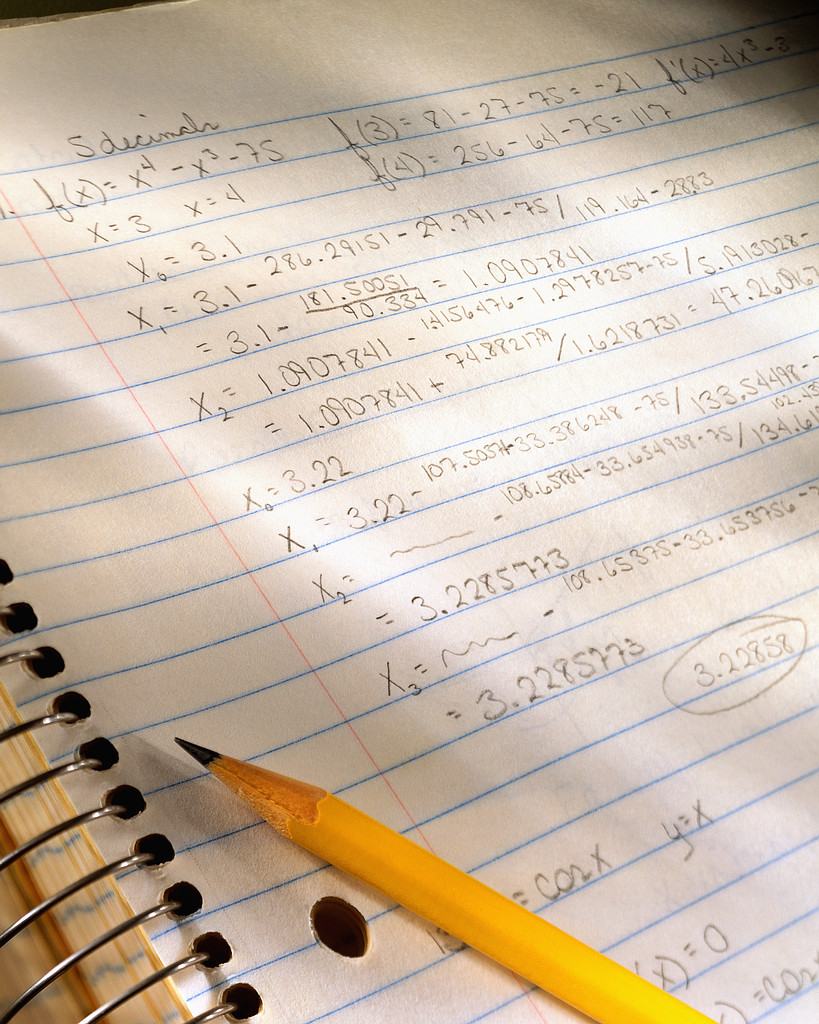 5 decimals
1. f(x) = x⁴ - x³ - 75 f(3) = 81 - 27 - 75 = -21 f'(x) = 4x³ - 3
x = 3 x = 4 f(4) = 256 - 64 - 75 = 117
x₀ = 3.1
x₁ = 3.1 - 286.29151 - 29.791 - 75 / 119.164 - 28.83
= 3.1 - 181.50051 / 90.334 = 1.0907841
x₂ = 1.0907841 - 1.4156476 - 1.2978257 - 75 / 5.1913028 -
= 1.0907841 + 74.882179 / 1.6218731 = 47.260167
x₀ = 3.22
x₁ = 3.22 - 107.5054 - 33.386248 - 75 / 133.54498 -
x₂ = - 108.65884 - 33.654938 - 75 / 134.61
= 3.2285773
x₃ = - 108.65375 - 33.653756 -
= 3.2285773 3.22858
= cos x y = x
(x) = 0
) = cos